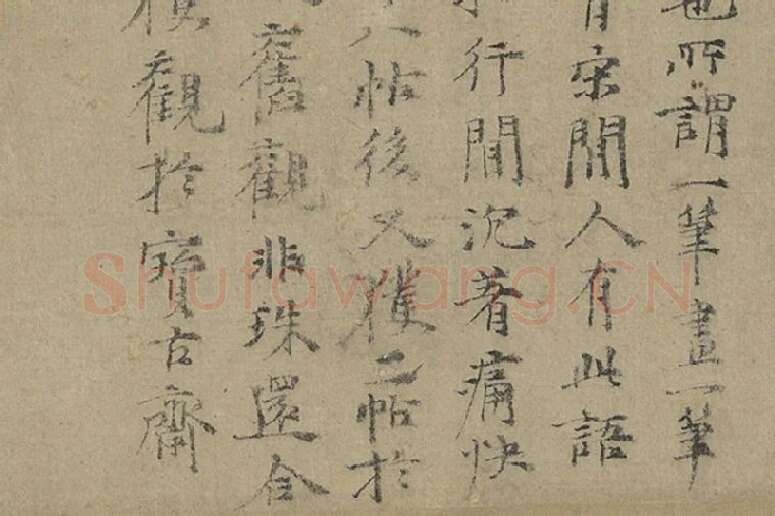 所謂一筆畫一筆
宋間人有此語
行間沉著痛快
八帖後又獲二帖於
舊觀非珠還合
觀於寶古齋
Shufawang.CN